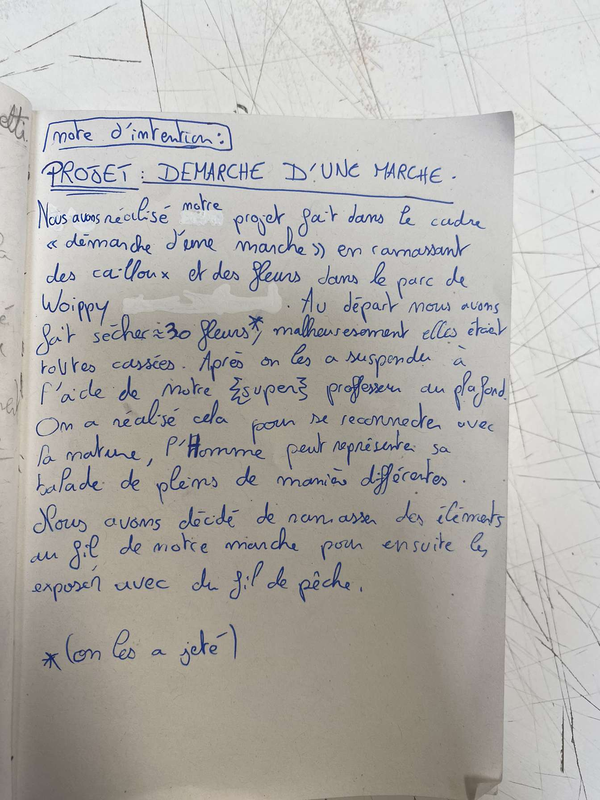 note d'intention :
PROJET : DEMARCHE D'UNE MARCHE.
Nous avons réalisé notre projet fait dans le cadre
« démarche d'une marche » en ramassant
des cailloux et des fleurs dans le parc de
Woippy . Au départ nous avons
fait sécher ≈ 30 fleurs*, malheuresement elles était
toutes cassées. Après on les a suspendu à
l'aide de notre {super} professeur au plafond.
On a réalisé cela pour se reconnecter avec
la nature, l'Homme peut représenter sa
balade de pleins de manière différentes.
Nous avons décidé de ramasser des éléments
au fil de notre marche pour ensuite les
exposer avec du fil de pêche.
*(on les a jeté)